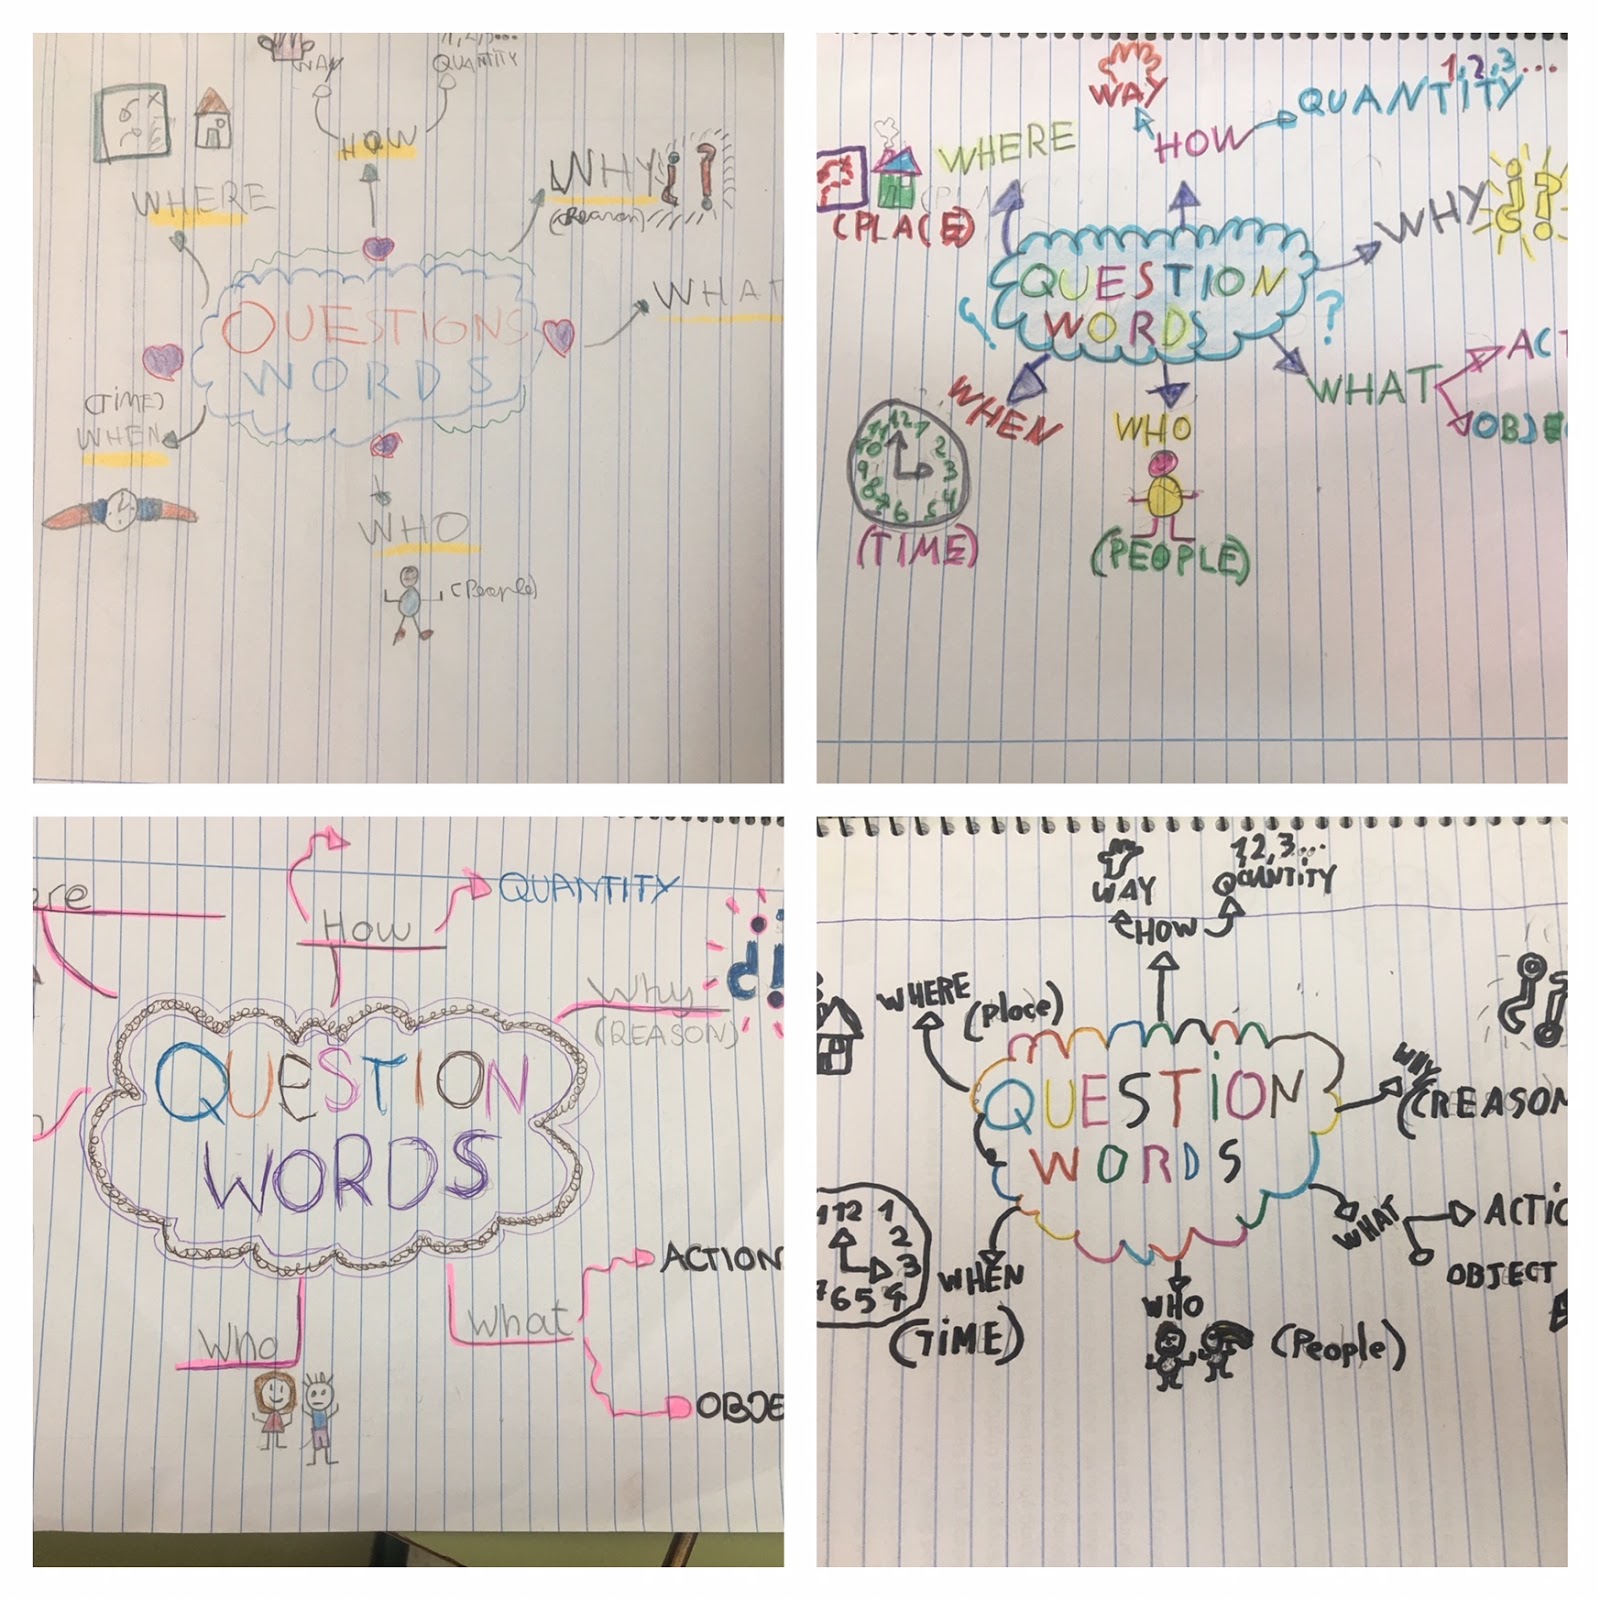 WAY
1,2,3...
QUANTITY
HOW
WHERE
WHY ¿?
(Reason)
WHAT
QUESTIONS
WORDS
(TIME)
WHEN
WHO
(People)
WAY
1,2,3...
QUANTITY
HOW
WHERE
(PLACE)
WHY ¿?
QUESTION
WORDS
¿ ?
WHEN
WHAT
ACT
OBJE
WHO
12 1 2 3 4 5 6 7 8 9 10 11
(TIME)
(PEOPLE)
ere
How
QUANTITY
Why
(REASON)
¿?
QUESTION
WORDS
Who
What
ACTION
OBJE
WAY
1,2,3...
QUANTITY
HOW
WHERE
(place)
WHY
¿?
(REASON
QUESTION
WORDS
12 1
2
3
6 5 4
WHEN
(TIME)
WHAT
ACTIO
OBJECT
WHO
(People)